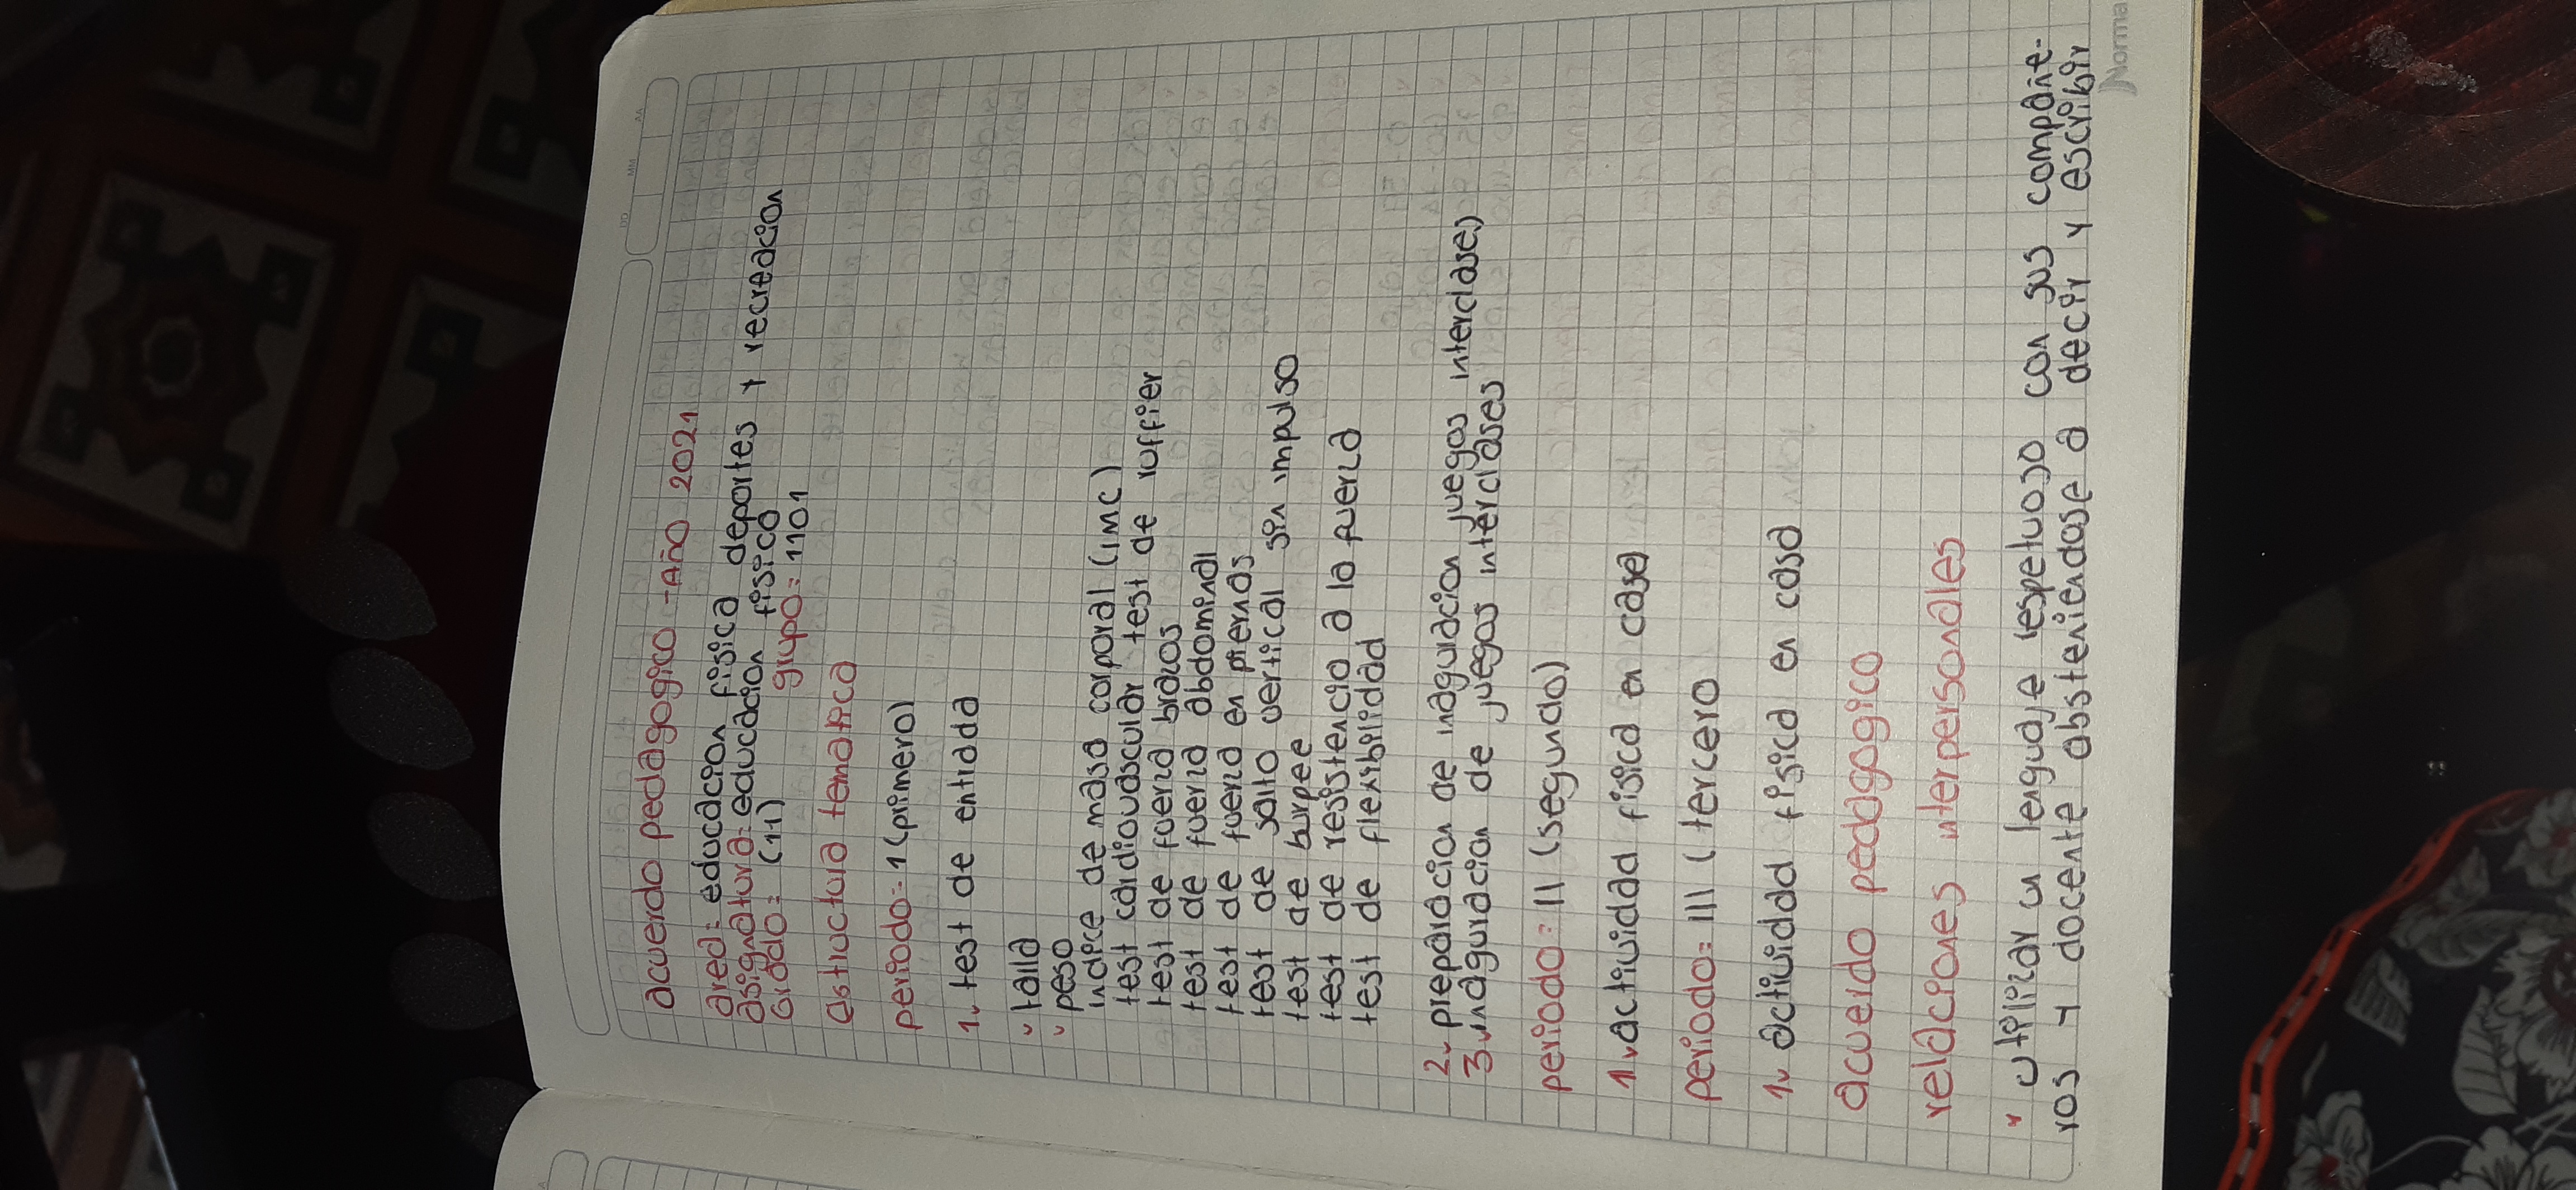 acuerdo pedagogico - Año 2021
area: educacion fisica deportes y recreacion
asignatura: educacion fisica
Grado: (11) grupo: 1101
estructura tematica
periodo: 1 (primero)
1. test de entidad
talla
peso
indice de masa corporal (IMC)
test cardiovascular test de ruffier
test de fuerza brazos
test de fuerza abdominal
test de fuerza en piernas
test de salto vertical sin impulso
test de burpee
test de resistencia a la fuerza
test de flexibilidad
2. preparacion de inaguracion juegos interclases)
3. inaguracion de juegos interclases
periodo: II (segundo)
1. actividad fisica en casa)
periodo: III (tercero
1. actividad fisica en casa
acuerdo pedagogico
relaciones interpersonales
utilizar un lenguaje respetuoso con sus compañe-
ros y docente absteniendose a decir y escribir
Norma